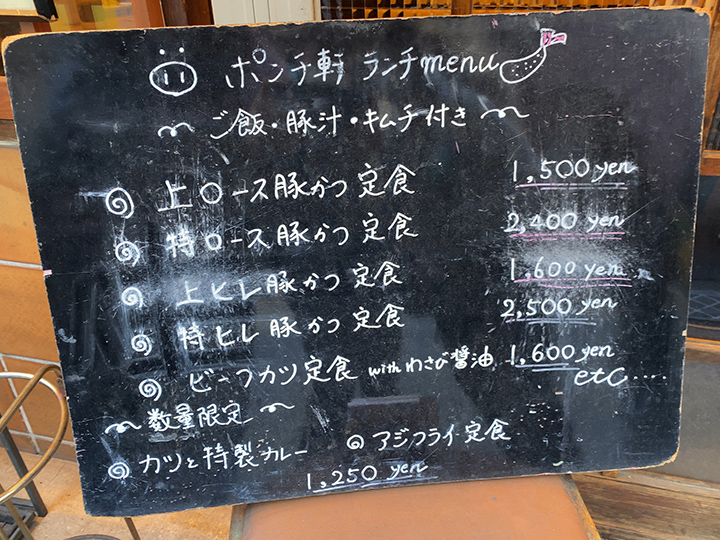 ポンチ軒 ランチmenu
ご飯・豚汁・キムチ付き
上ロース豚かつ定食 1,500yen
特ロース豚かつ定食 2,400yen
上ヒレ豚かつ定食 1,600yen
特ヒレ豚かつ定食 2,500yen
ビーフカツ定食 withわさび醤油 1,600yen
etc....
数量限定
カツと特製カレー アジフライ定食
1,250yen